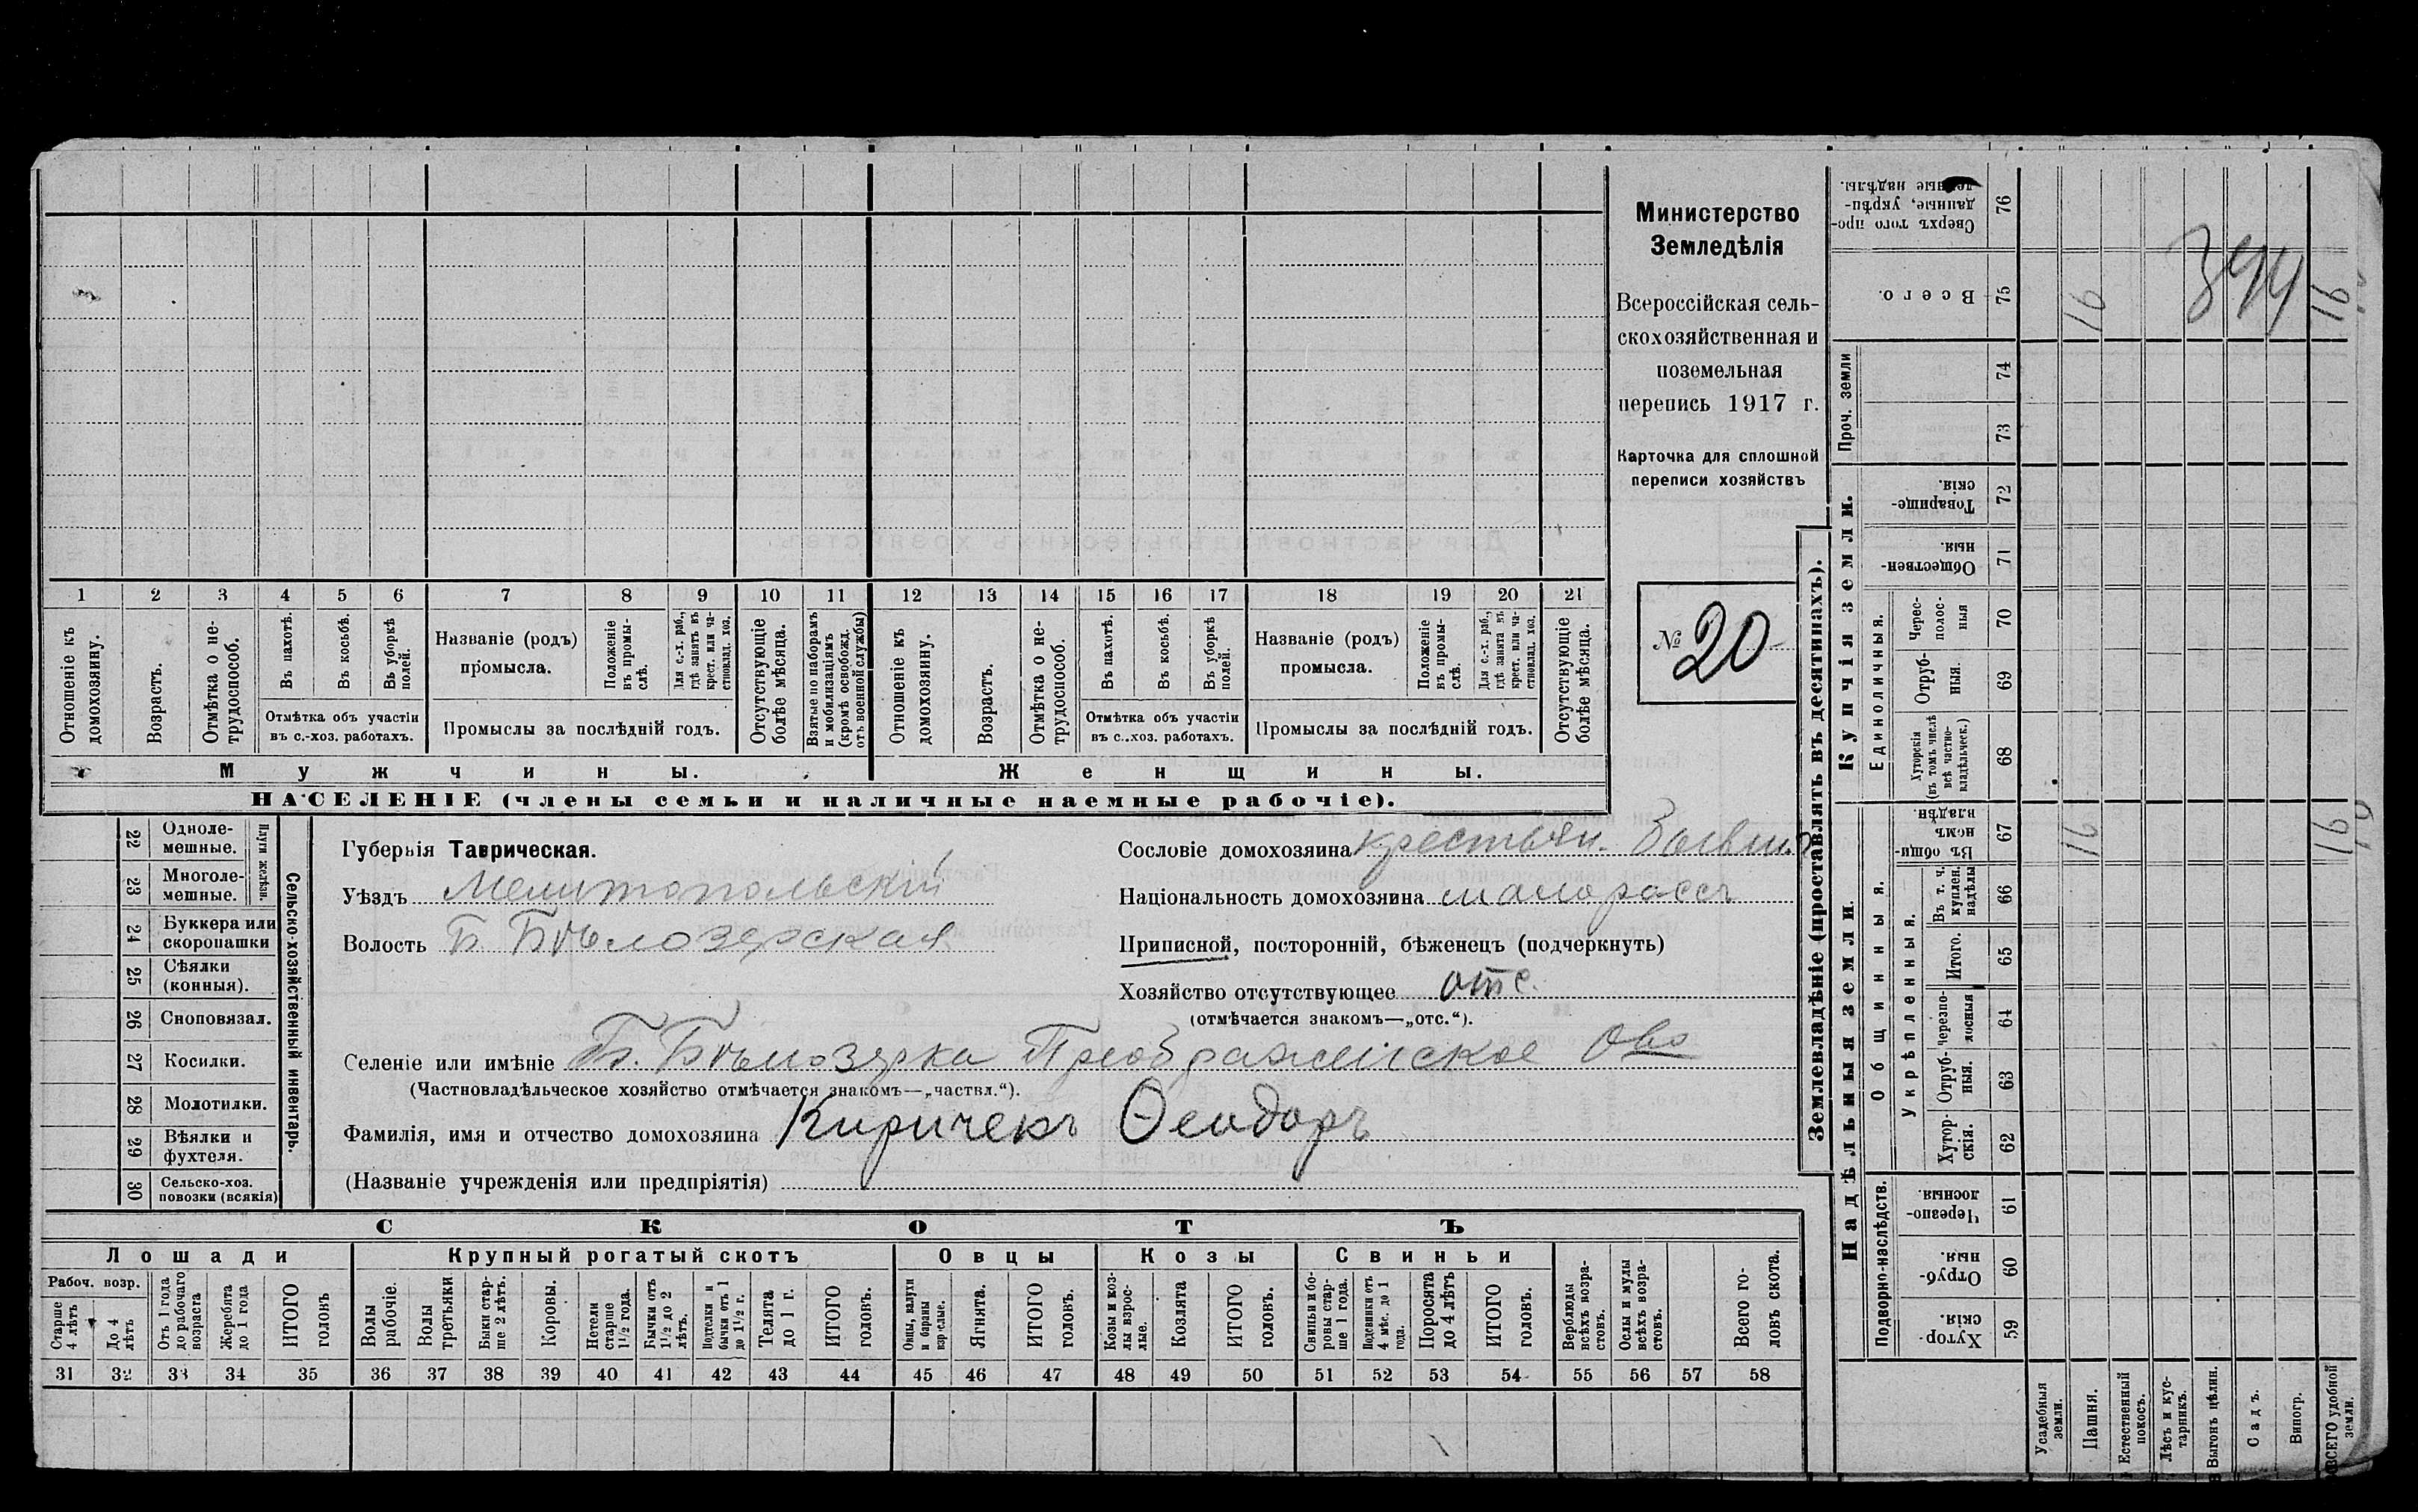 Министерство
Земледѣлія
Всероссійская сель-
скохозяйственная и
поземельная
перепись 1917 г.
Карточка для сплошной
переписи хозяйствъ
№ 20
1 2 3 4 5 6 7 8 9 10 11 12 13 14 15 16 17 18 19 20 21
Отношеніе къ домохозяину.
Возрастъ.
Отмѣтка о не-трудоспособ.
Въ пахотѣ.
Въ косьбѣ.
Въ уборкѣ полей.
Отмѣтка объ участіи
въ с.-хоз. работахъ.
Названіе (родъ)
промысла.
Положеніе въ промы-слѣ.
Для с.-х. раб., гдѣ занятъ въ крест. или ча-стновлад. хоз.
Промыслы за послѣдній годъ.
Отсутствующіе болѣе мѣсяца.
Взятые по наборамъ и мобилизаціямъ (кромѣ освобожд. отъ военной службы)
Отношеніе къ домохозяину.
Возрастъ.
Отмѣтка о не-трудоспособ.
Въ пахотѣ.
Въ косьбѣ.
Въ уборкѣ полей.
Отмѣтка объ участіи
въ с.-хоз. работахъ.
Названіе (родъ)
промысла.
Положеніе въ промы-слѣ.
Для с.-х. раб., гдѣ занята въ крест. или ча-стновлад. хоз.
Промыслы за послѣдній годъ.
Отсутствующіе болѣе мѣсяца.
Мужчины. Женщины.
НАСЕЛЕНІЕ (члены семьи и наличные наемные рабочіе).
22 Одноле-мешные.
23 Многоле-мешные.
Плуги желѣзн.
24 Буккера или скоропашки
25 Сѣялки (конныя).
26 Сноповязал.
27 Косилки.
28 Молотилки.
29 Вѣялки и фухтеля.
30 Сельско-хоз. повозки (всякія)
Сельско-хозяйственный инвентарь.
Губернія Таврическая.
Уѣздъ Мелитопольскій
Волость Б Бѣлозерская
Сословіе домохозяина крестьян.
Національность домохозяина малоросс
Приписной, посторонній, бѣженецъ (подчеркнуть)
Хозяйство отсутствующее отс.
(отмѣчается знакомъ—„отс.“).
Селеніе или имѣніе Б. Бѣлозерка Преображенское Ово
(Частновладѣльческое хозяйство отмѣчается знакомъ—„частвл.“).
Фамилія, имя и отчество домохозяина Киричекъ Ѳеодоръ
(Названіе учрежденія или предпріятія)
СКОТЪ
Лошади Крупный рогатый скотъ Овцы Козы Свиньи
Рабоч. возр.
Старше 4 лѣтъ
До 4 лѣтъ
Отъ 1 года до рабочаго возраста
Жеребята до 1 года
ИТОГО головъ
Волы рабочіе.
Волы третьяки
Быки стар-ше 2 лѣтъ.
Коровы.
Нетели старше 1 1/2 года.
Бычки отъ 1 1/2 до 2 лѣтъ.
Подтелки и бычки отъ 1 до 1 1/2 г.
Телята до 1 г.
ИТОГО головъ.
Овцы, валухи и бараны взрослые.
Ягнята.
ИТОГО головъ.
Козы и коз-лы взрос-лые.
Козлята
ИТОГО головъ.
Свиньи и бо-ровы стар-ше 1 года.
Подсвинки отъ 4 мѣс. до 1 года.
Поросята до 4 лѣтъ
ИТОГО головъ.
Верблюды всѣхъ возра-стовъ.
Ослы и мулы всѣхъ возра-стовъ.
Всего го-ловъ скота.
31 32 33 34 35 36 37 38 39 40 41 42 43 44 45 46 47 48 49 50 51 52 53 54 55 56 57 58
Землевладѣніе (проставлять въ десятинахъ).
Надѣльныя земли.
Купчія земли.
Проч. земли
Подворно-наслѣдств.
Общинныя.
Укрѣпленныя.
Единоличныя.
59 Хутор-скія.
60 Отруб-ныя.
61 Черезпо-лосныя.
62 Хутор-скія.
63 Отруб-ныя.
64 Черезпо-лосныя
65 Итого.
66 Въ т. ч. куплен. надѣлы
67 Въ общин-номъ владѣн.
68 Хуторскія (въ томъ числѣ всѣ частно-владѣльческ.)
69 Отруб-ныя.
70 Черес-полос-ныя
71 Обществен-ныя.
72 Товарище-скія.
73
74
75 Всего.
76 Сверхъ того про-данные, укрѣп-ленные надѣлы.
Усадебныя земли.
Пашня.
16
16
Естественный покосъ.
Лѣсъ и кус-тарникъ.
Выгонъ цѣлин.
Садъ.
Виногр.
ВСЕГО удобной земли.
16
16
344